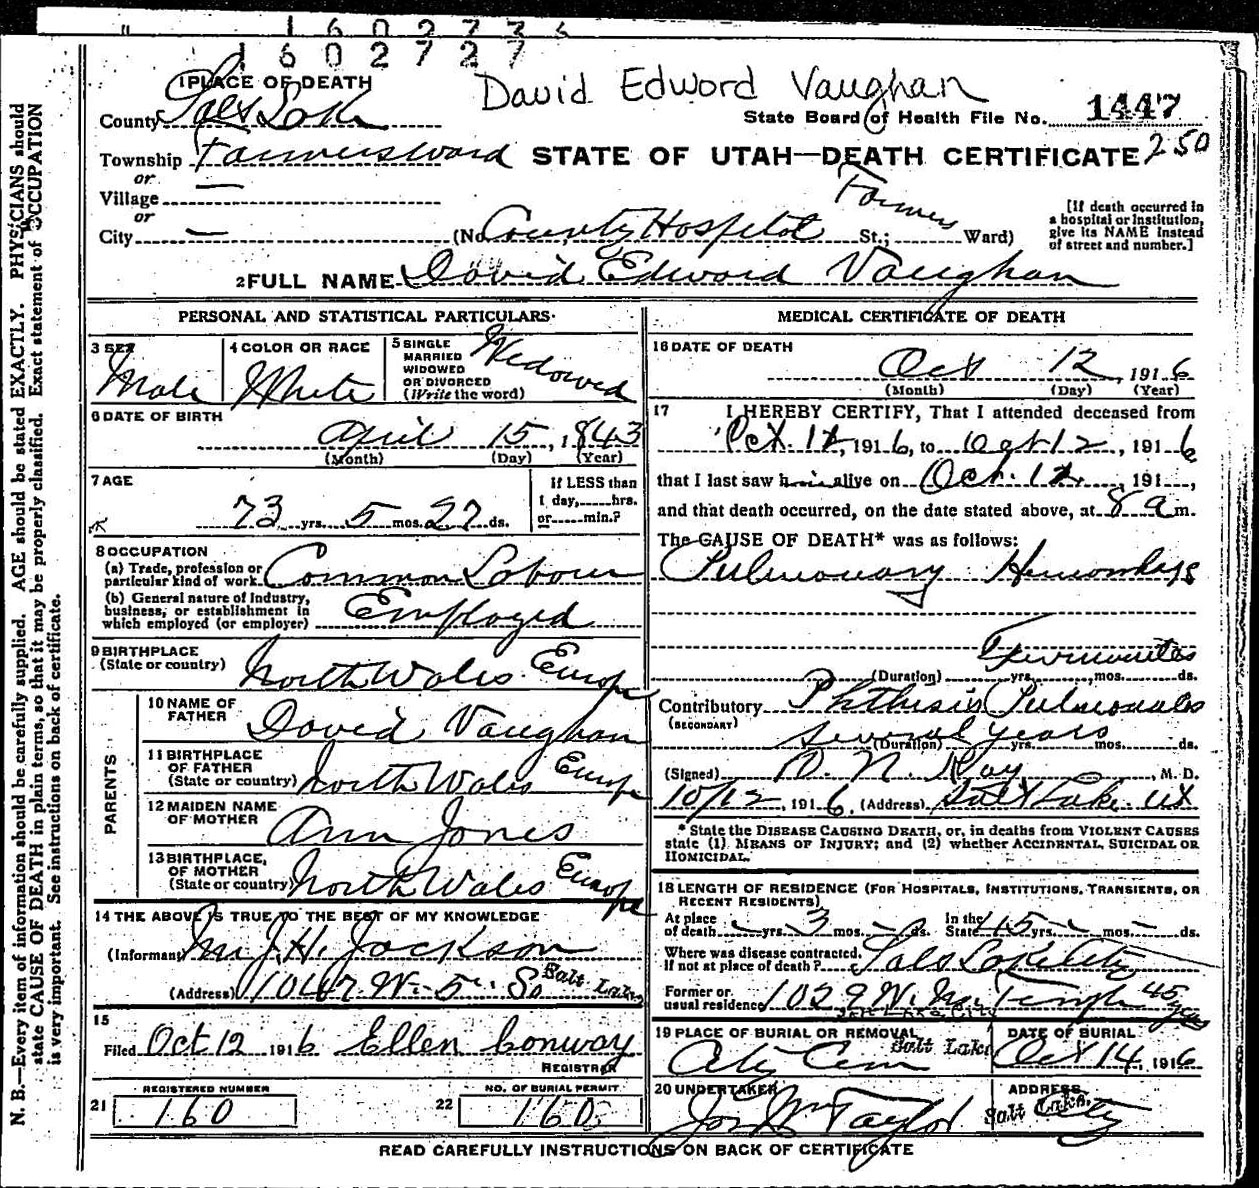 1602736
1602727
1 PLACE OF DEATH
David Edword Vaughan
County Salt Lake
State Board of Health File No. 1447
Township Farmersward STATE OF UTAH—DEATH CERTIFICATE 250
or
Village —
or
City — (No. County Hospital St.; Farmers Ward)
[If death occurred in a hospital or institution, give its NAME instead of street and number.]
2 FULL NAME David Edword Vaughan
PERSONAL AND STATISTICAL PARTICULARS
3 SEX Male
4 COLOR OR RACE White
5 SINGLE MARRIED WIDOWED OR DIVORCED (Write the word) Widowed
6 DATE OF BIRTH
April 15, 1843
(Month) (Day) (Year)
7 AGE
73 yrs. 5 mos. 27 ds.
If LESS than 1 day, hrs. or min.?
8 OCCUPATION
(a) Trade, profession or particular kind of work. Common Labour
(b) General nature of Industry, business, or establishment in which employed (or employer) Employed
9 BIRTHPLACE (State or country) North Wales Europe
PARENTS
10 NAME OF FATHER David Vaughan
11 BIRTHPLACE OF FATHER (State or country) North Wales Europe
12 MAIDEN NAME OF MOTHER Ann Jones
13 BIRTHPLACE, OF MOTHER (State or country) North Wales Europe
14 THE ABOVE IS TRUE TO THE BEST OF MY KNOWLEDGE
(Informant) J. H. Jackson
(Address) 1047 W. 5th So Salt Lake
15
Filed Oct 12 1916 Ellen Conway
REGISTRAR
REGISTERED NUMBER
21 160
NO. OF BURIAL PERMIT
22 160
MEDICAL CERTIFICATE OF DEATH
16 DATE OF DEATH
Oct 12, 1916
(Month) (Day) (Year)
17 I HEREBY CERTIFY, That I attended deceased from
Oct. 12, 1916, to Oct 12, 1916
that I last saw him alive on Oct. 12, 191 ,
and that death occurred, on the date stated above, at 8 a m.
The CAUSE OF DEATH* was as follows:
Pulmonary
(Duration) yrs. mos. ds.
Contributory Phthisis Pulmonales
(SECONDARY)
several years
(Duration) yrs. mos. ds.
(Signed) D. N. Ray, M. D.
10/12, 1916. (Address) Salt Lake. Ut
* State the DISEASE CAUSING DEATH, or, in deaths from VIOLENT CAUSES state (1) MEANS OF INJURY; and (2) whether ACCIDENTAL, SUICIDAL OR HOMICIDAL.
18 LENGTH OF RESIDENCE (FOR HOSPITALS, INSTITUTIONS, TRANSIENTS, OR RECENT RESIDENTS)
At place of death — yrs. 3 mos. — ds. In the State 45 yrs. — mos. — ds.
Where was disease contracted, if not at place of death? Salt Lake City
Former or usual residence 1029 W. No. Temple 45 years
SALT LAKE CITY
19 PLACE OF BURIAL OR REMOVAL
City Cem Salt Lake
DATE OF BURIAL
Oct 14, 1916
20 UNDERTAKER
Jos Wm Taylor
ADDRESS
Salt Lake City
READ CAREFULLY INSTRUCTIONS ON BACK OF CERTIFICATE
N. B.—Every item of information should be carefully supplied. AGE should be stated EXACTLY. PHYSICIANS should
state CAUSE OF DEATH in plain terms, so that it may be properly classified. Exact statement of OCCUPATION
is very important. See instructions on back of certificate.